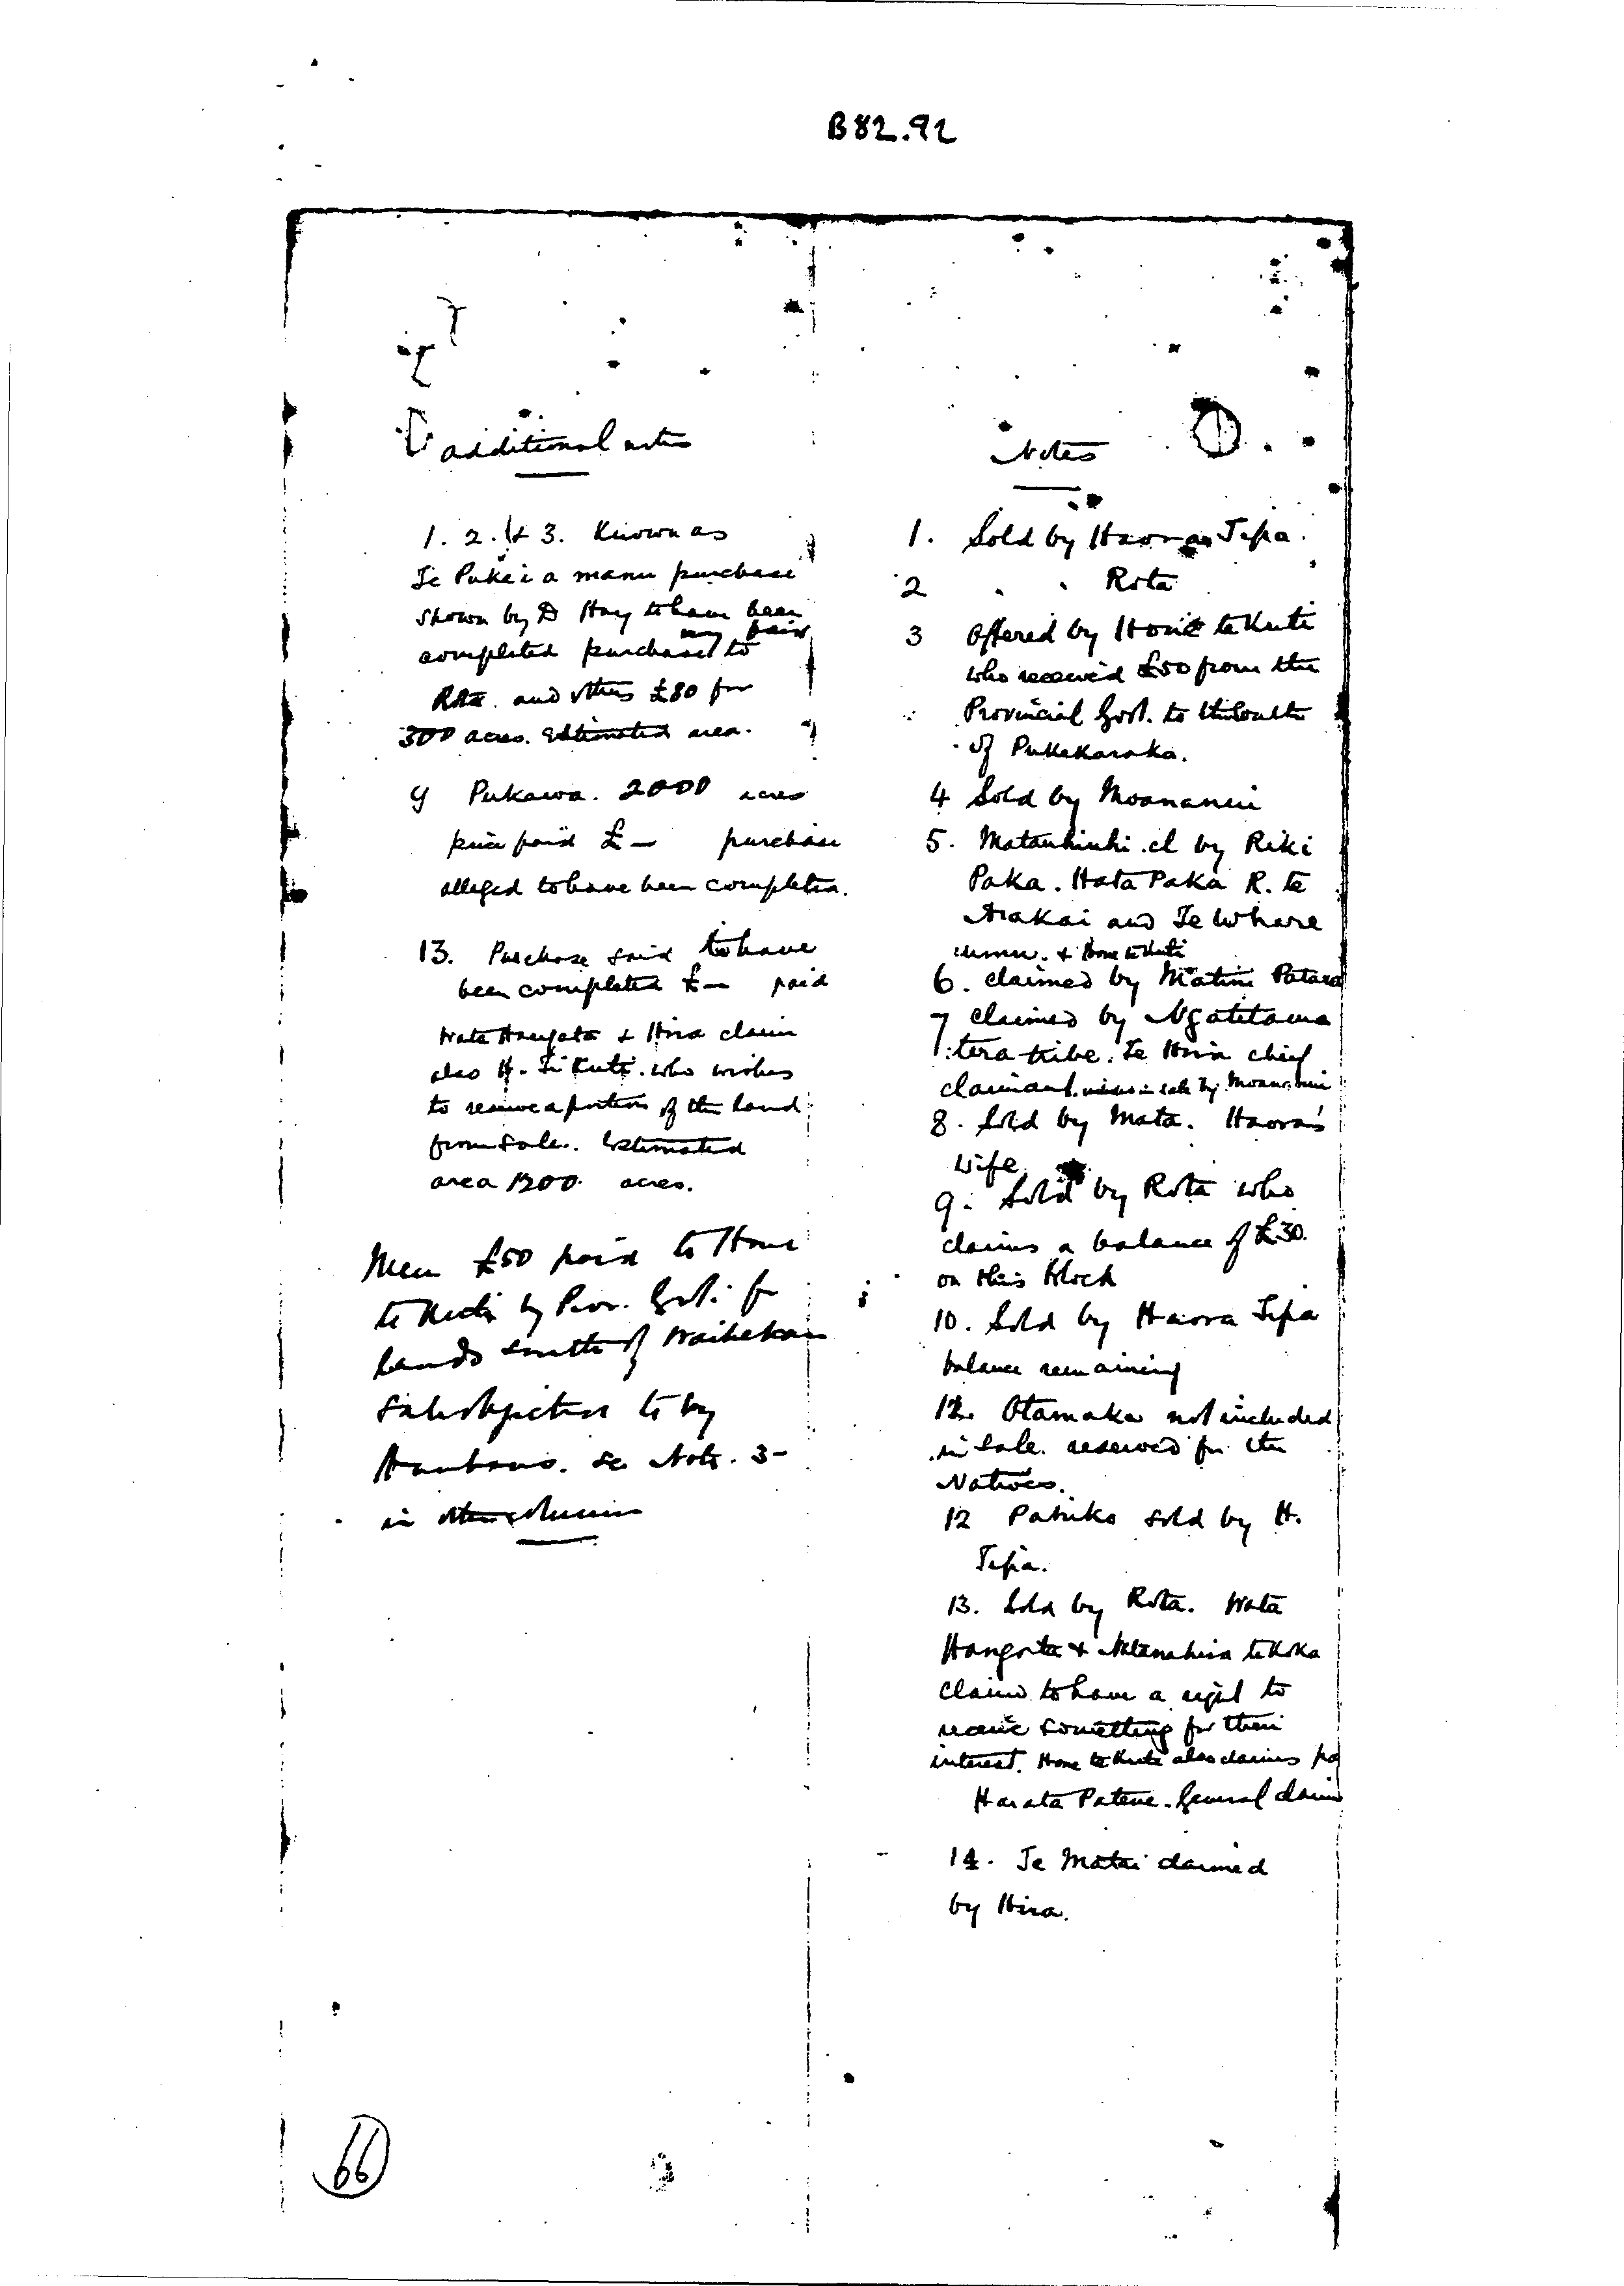 B82.92
additional notes
1. 2. & 3. Known as
Te Puke i a manu purchase
shown by D Hay to have been
completed purchased to
Rota and others £80 for
300 acres. Estimated area.
9 Pukawa. 2000 acres
price paid £— purchase
alleged to have been completed.
13. Purchase said to have
been completed £— paid
Wata Hangata & Hira claim
also H. Te Kuti. who wishes
to reserve a portion of the land
from sale. Estimated
area 1200 acres.
Mem £50 paid to Hone
te Kuti by Prov. Govt. for
lands south of
to by
see Note. 3-
in other column
66
Notes
1. Sold by Haora Tipa.
2 " " Rota
3 Offered by Hone te Kuti
who received £50 from the
Provincial Govt. to the South
of Pukekaroka.
4 Sold by Moananui
5. cl by Riki
Paka. Hata Paka R. te
Arakai and Te Whare
& Hone te Kuti
6. claimed by Matini Patara
7 claimed by Ngatitama
tera tribe. Te Hira chief
claimant. in sale by Moananui
8. Sold by Mata. Haora's
wife.
9. Sold by Rota who
claims a balance of £30.
on this block
10. Sold by Haora Tipa
balance remaining
12. Otamaka not included
in Sale. reserved for the
Natives.
12 Patuko sold by H.
Tipa.
13. Sold by Rota. Wata
Hangata & te Koka
claims to have a right to
receive something for their
interest. Hone te Kuti also claims
Harata Patene. General claim
14. Te Matai claimed
by Hira.